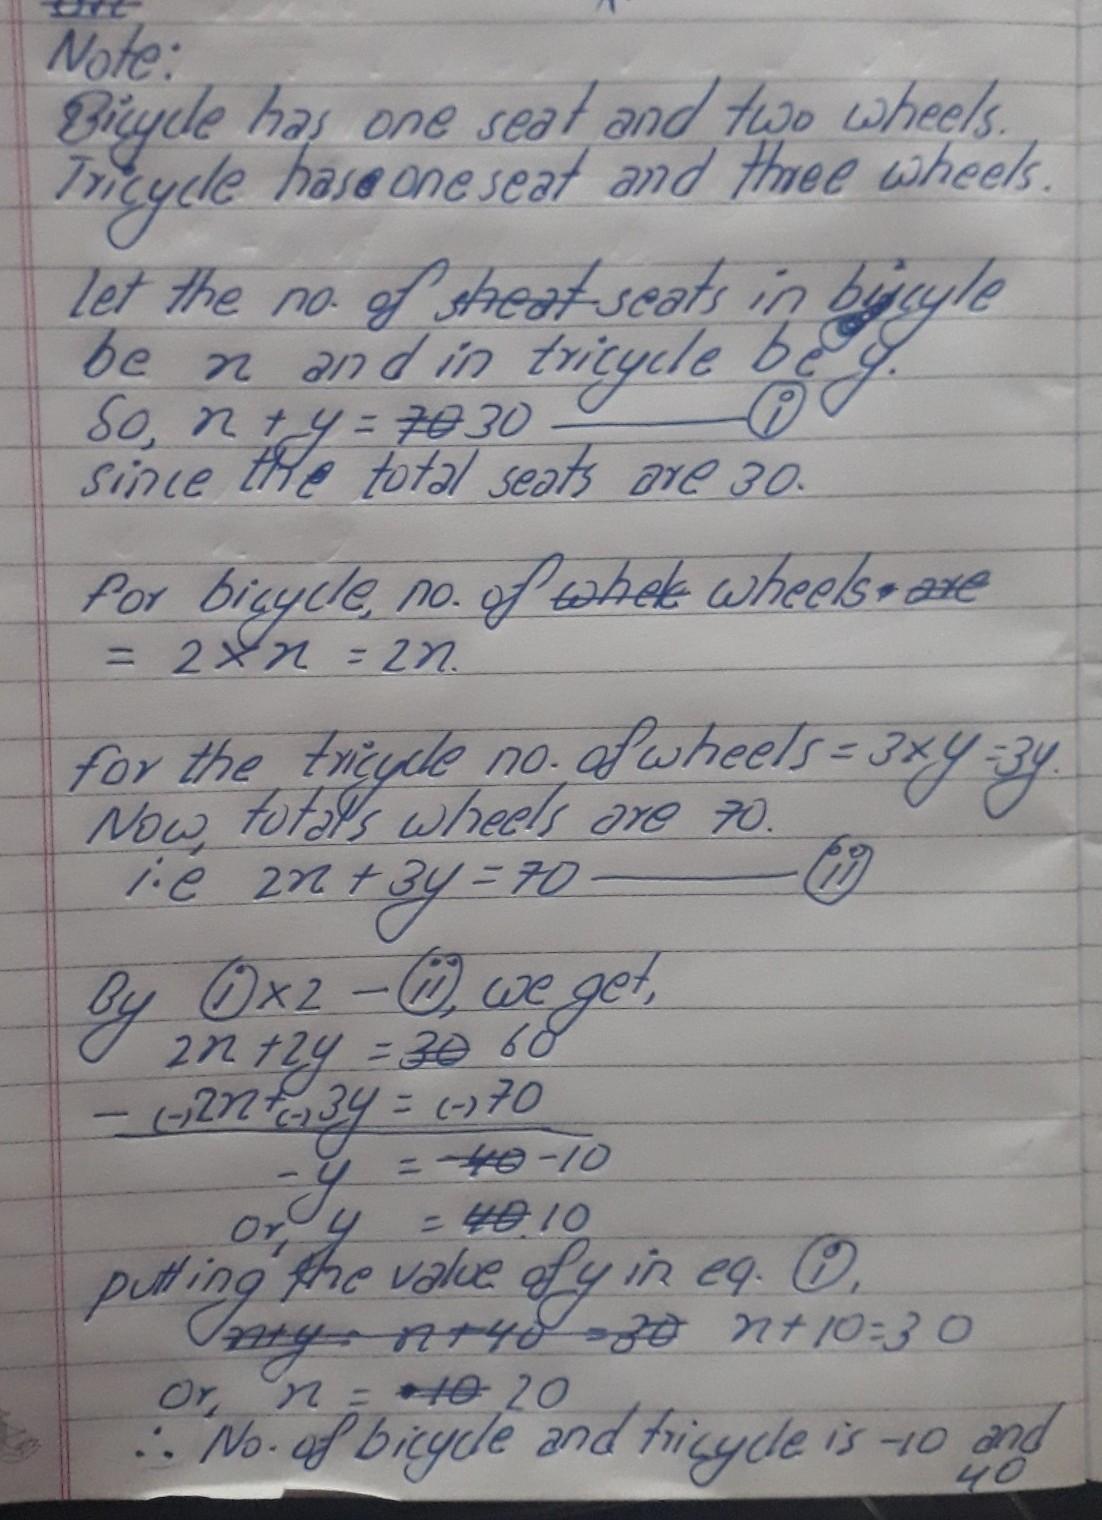 Note:
Bicycle has one seat and two wheels.
Tricycle has one seat and three wheels.
let the no. of sheat seats in bicycle
be x and in tricycle be y.
So, x + y = 70 30 ——— (i)
since the total seats are 30.
for bicycle, no. of whek wheels are
= 2 × x = 2x.
for the tricycle no. of wheels = 3×y =3y.
Now, totals wheels are 70.
i.e 2x + 3y = 70 ——— (ii)
By (i) × 2 - (ii), we get,
2x + 2y = 30 60
- (-)2x + (-)3y = (-)70
-y = -40 -10
or, y = 40 10
putting the value of y in eq. (i),
x+y= x + 40 = 30 x + 10 = 30
Or, x = -10 20
∴ No. of bicycle and tricycle is -10 and
40